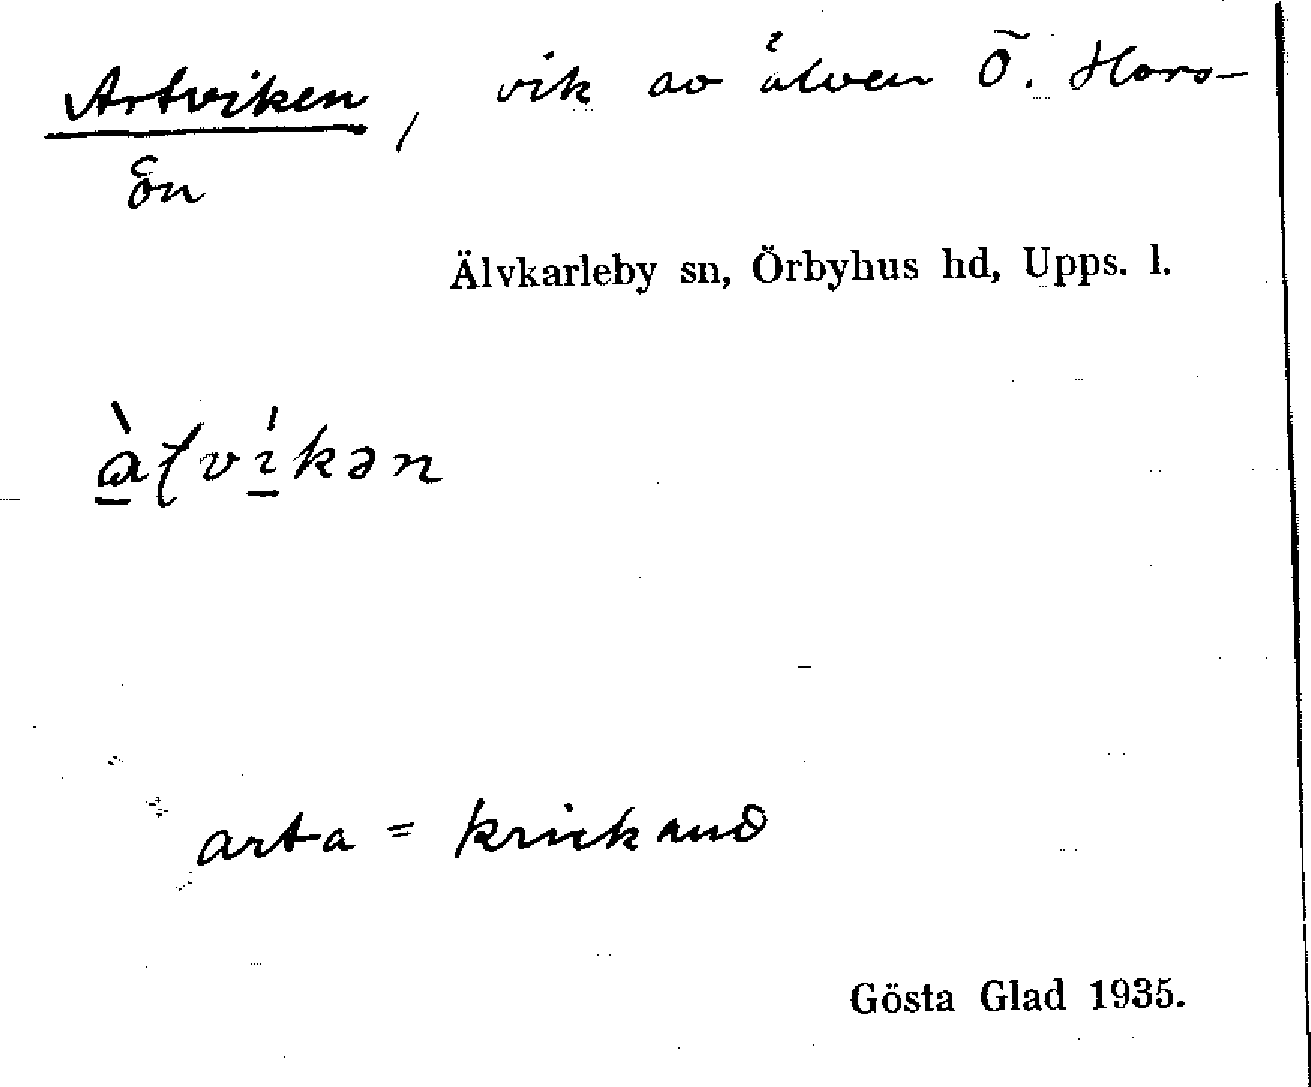 Artviken, vik av älven Ö. Hars-
ön
Älvkarleby sn, Örbyhus hd, Upps. l.
arta = krickand
Gösta Glad 1935.